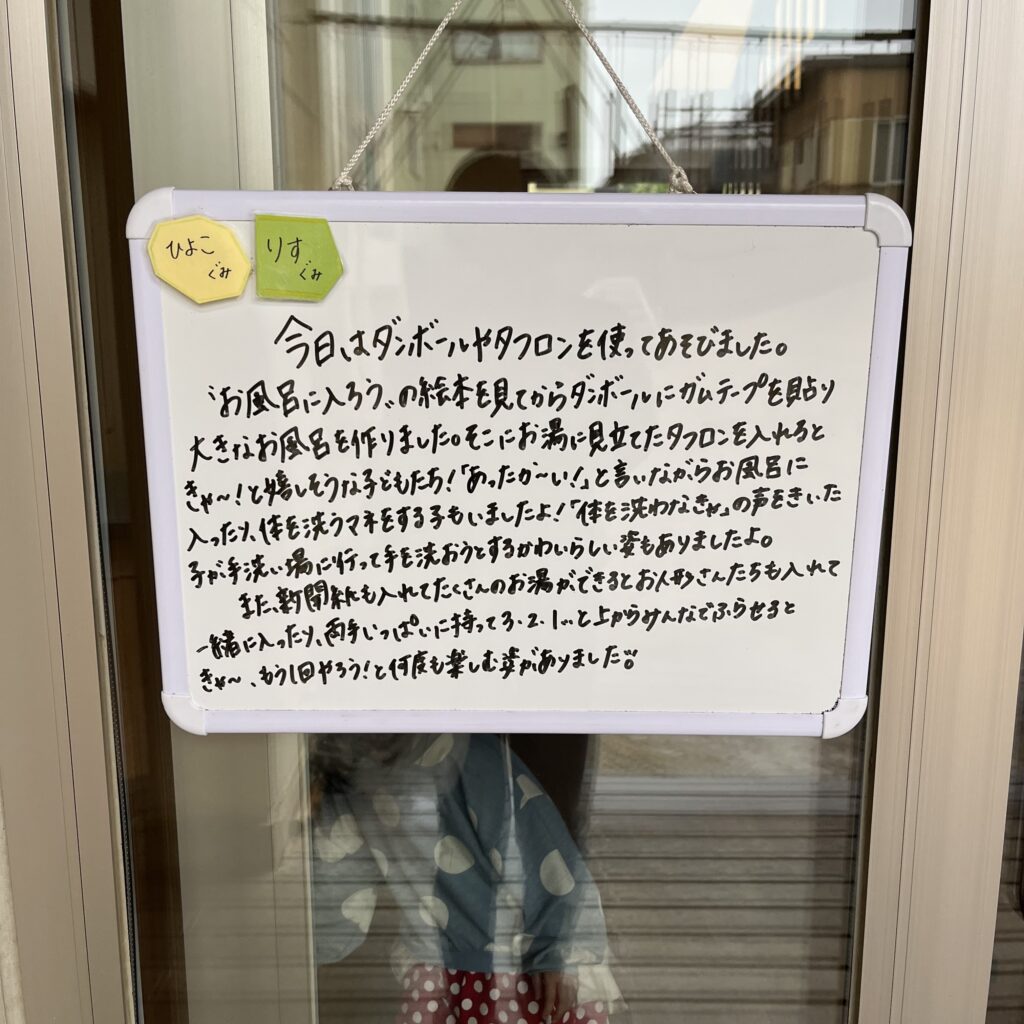 ひよこ
ぐみ
りす
ぐみ
今日はダンボールやタフロンを使ってあそびました。
〝お風呂に入ろう〟の絵本を見てからダンボールにガムテープを貼り
大きなお風呂を作りました。そこにお湯に見立てたタフロンを入れると
きゃ〜!と嬉しそうな子どもたち!「あったか〜い!」と言いながらお風呂に
入ったり、体を洗うマネをする子もいましたよ!「体を洗わなきゃ」の声をきいた
子が手洗い場に行って手を洗おうとするかわいらしい姿もありましたよ。
また、新聞紙も入れてたくさんのお湯ができるとお人形さんたちも入れて
一緒に入ったり、両手いっぱいに持って3・2・1…と上からみんなでふらせると
きゃ〜、もう1回やろう!と何度も楽しむ姿がありました。